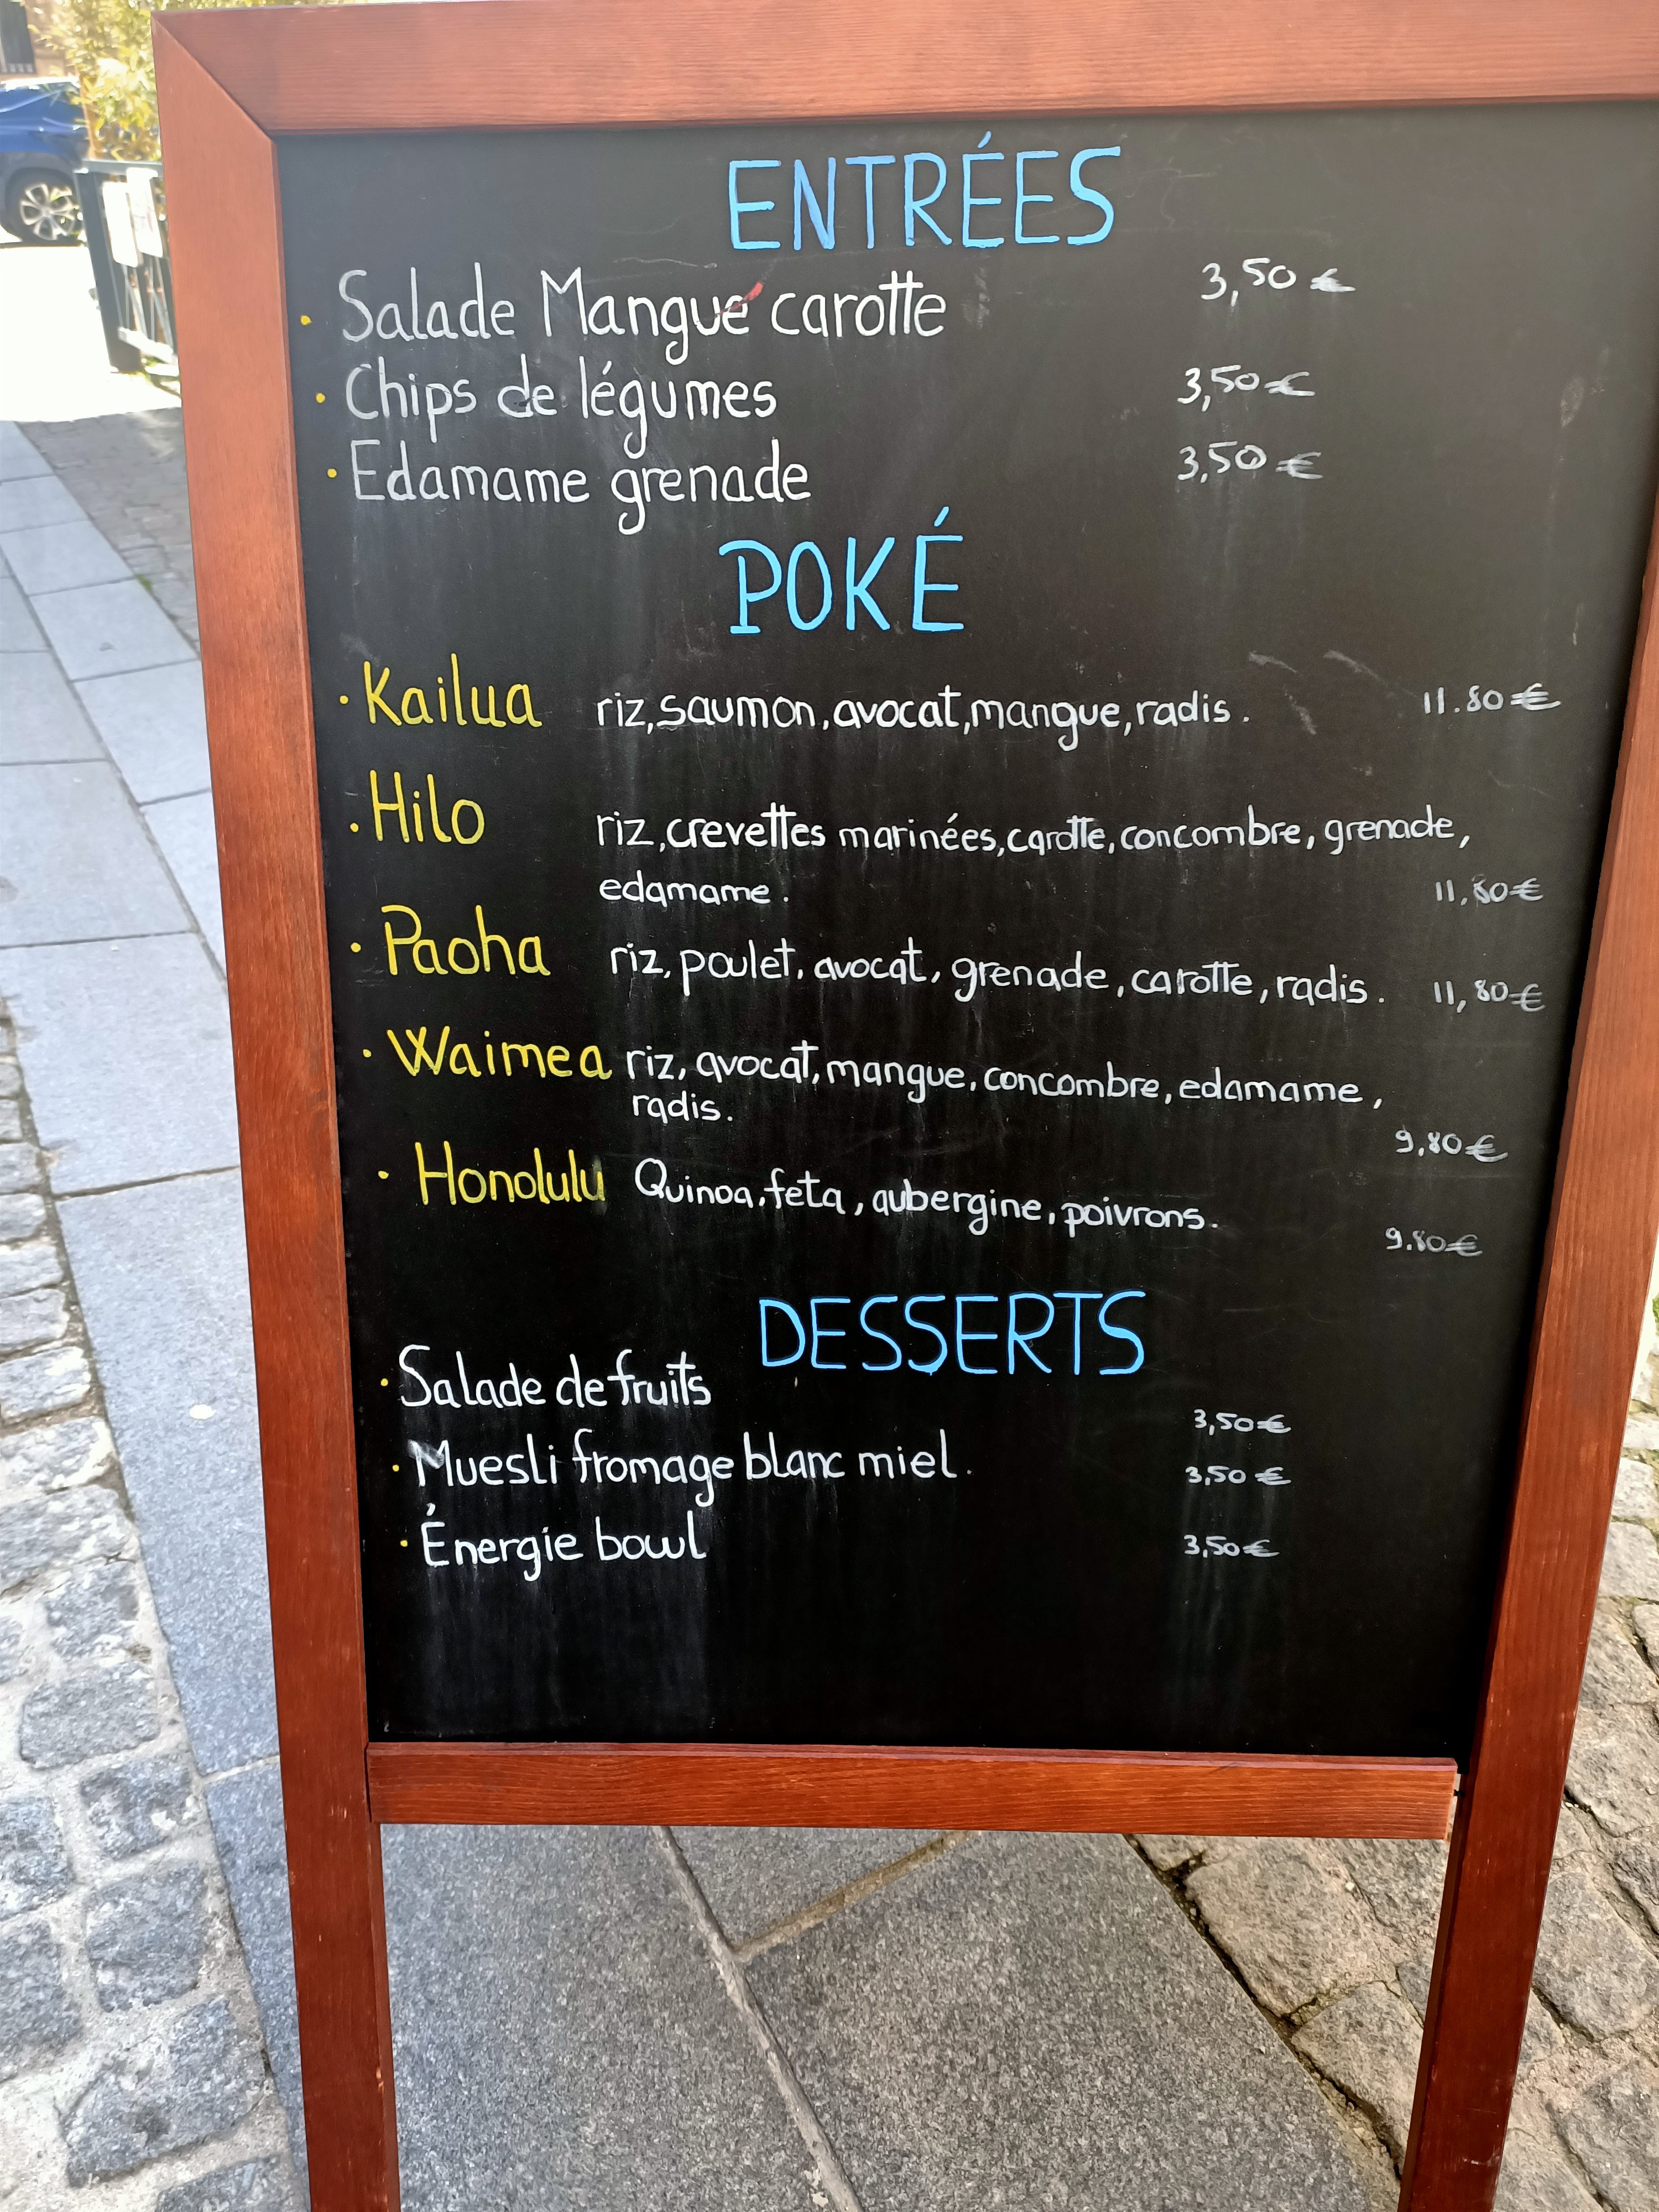 ENTRÉES
· Salade Mangue carotte 3,50 €
· Chips de légumes 3,50 €
· Edamame grenade 3,50 €
POKÉ
· Kailua riz, saumon, avocat, mangue, radis. 11.80 €
· Hilo riz, crevettes marinées, carotte, concombre, grenade,
edamame. 11,80 €
· Paoha riz, poulet, avocat, grenade, carotte, radis. 11,80 €
· Waimea riz, avocat, mangue, concombre, edamame,
radis.
9,80 €
· Honolulu Quinoa, feta, aubergine, poivrons.
9.80 €
DESSERTS
· Salade de fruits 3,50 €
· Muesli fromage blanc miel. 3,50 €
· Énergie bowl 3,50 €